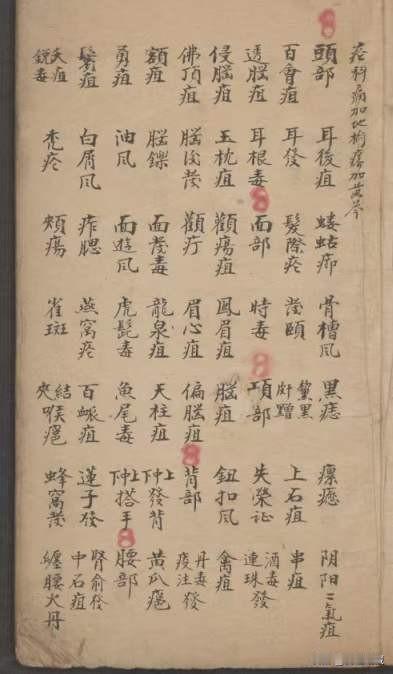 疮科痛加地榆癢加黄芩
頭部 百會疽 透腦疽 侵腦疽 佛頂疽 額疽 勇疽 鬢疽 夭疽銳毒
耳後疽 耳發 耳根毒 玉枕疽 腦後發 腦鑠 油风 白屑风 禿疮
螻蛄癤 髮際疮 面部 顴瘍疽 顴疔 面發毒 面遊风 痄腮 頰瘍
骨槽风 發頤 時毒 鳳眉疽 眉心疽 龍泉疽 虎髭毒 燕窩疮 雀斑
黑痣 黧黑皯䵳 項部 腦疽 偏腦疽 天柱疽 魚尾毒 百脈疽 結夾喉癰
瘰癧 上石疽 失榮证 鈕扣风 背部 上中下發背 上中下搭手 蓮子發 蜂窩發
阴阳二氣疽 串疽 酒毒連珠發 禽疽 丹毒疫注發 黄瓜癰 腰部 腎俞發中石疽 纏腰火丹